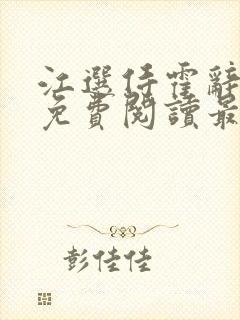 江選任霍辭
免費閱讀最
彭佳佳